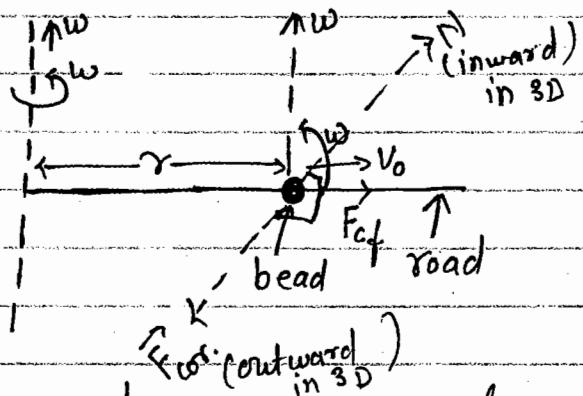 ω
ω
ω
N (inward)
in 3D
ω
r
V₀
F_cf
road
bead
F_cor. (outward
in 3D )